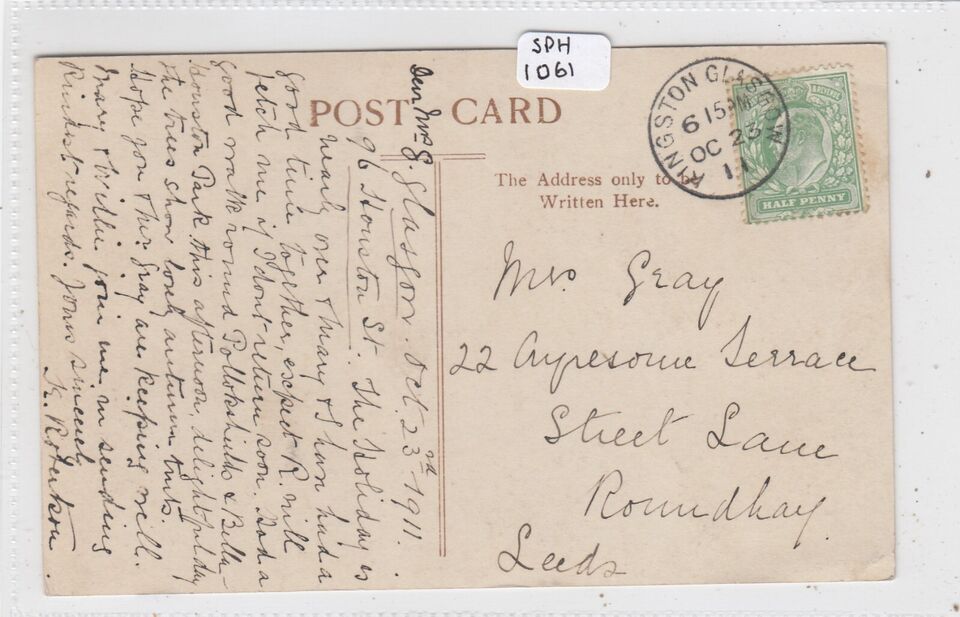 SPH
1061
POST CARD
The Address only to be
Written Here.
KINGSTON GLASGOW
6 15 PM
OC 23
11
REVENUE
HALF PENNY
Mrs. Gray
22 Ayresome Terrace
Street Lane
Roundhay
Leeds
Dear Mrs G. Glasgow. Oct. 23rd 1911.
96 Houston St. The Holiday is
nearly over & Mary & I have had a
good time together, expect R. will
fetch me if I dont return soon. Had a
good walk round Pollokshields & Bella-
houston Park this afternoon, delightful day
the trees show lovely autumn tints.
Hope you & Mr. Gray are keeping well.
Mary & Willie join me in sending
Kindest regards. Yours sincerely
K. Robertson